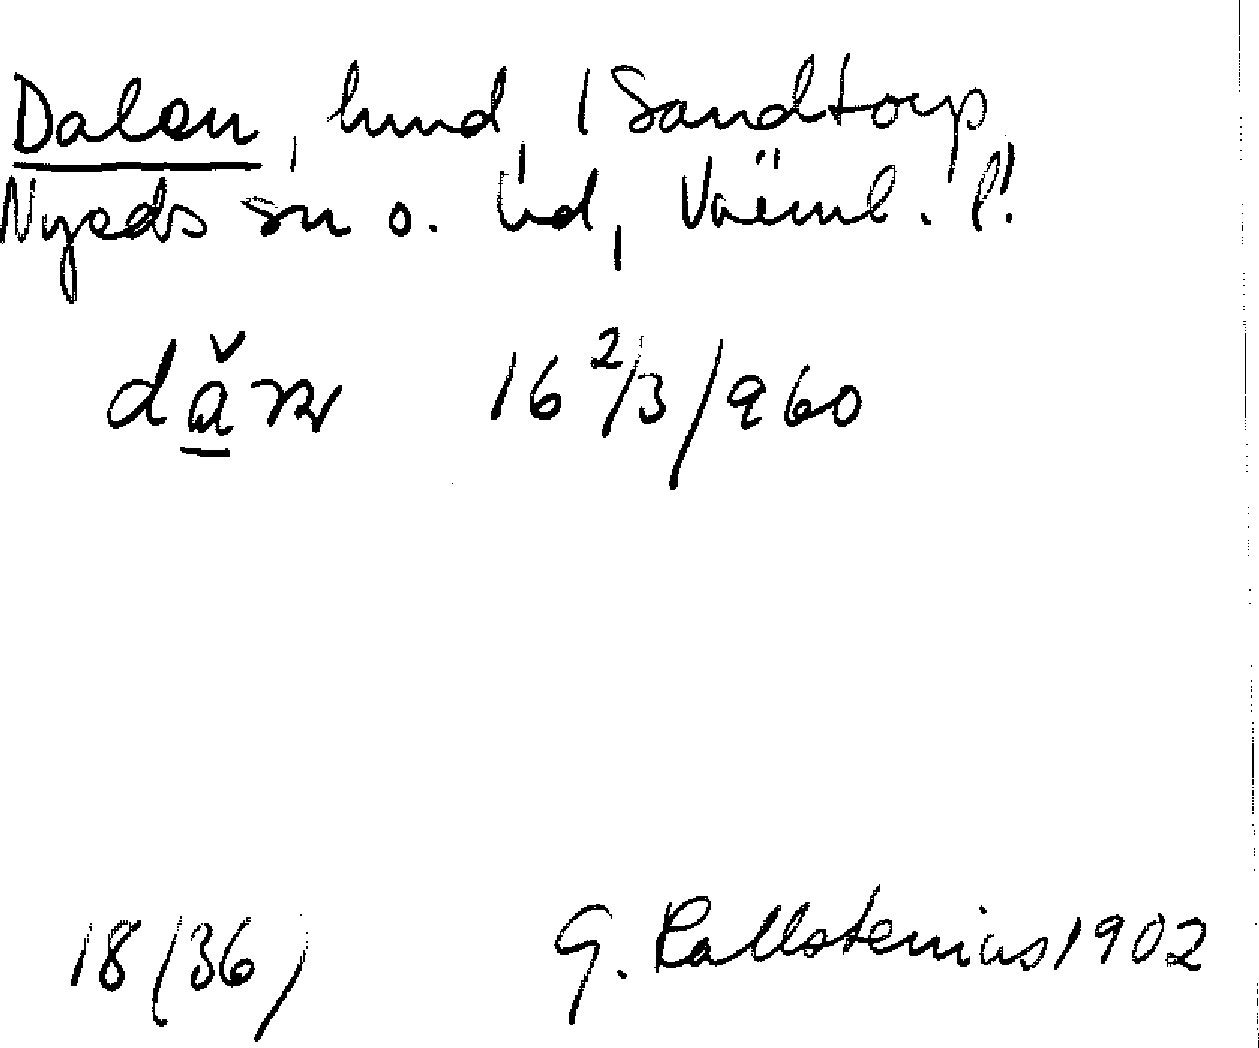 Dalen, hmd, 1 Sandtorp,
Nyeds sn o. hd, Värml. l.
16 2/3/960
18 (36) G. Kallstenius 1902